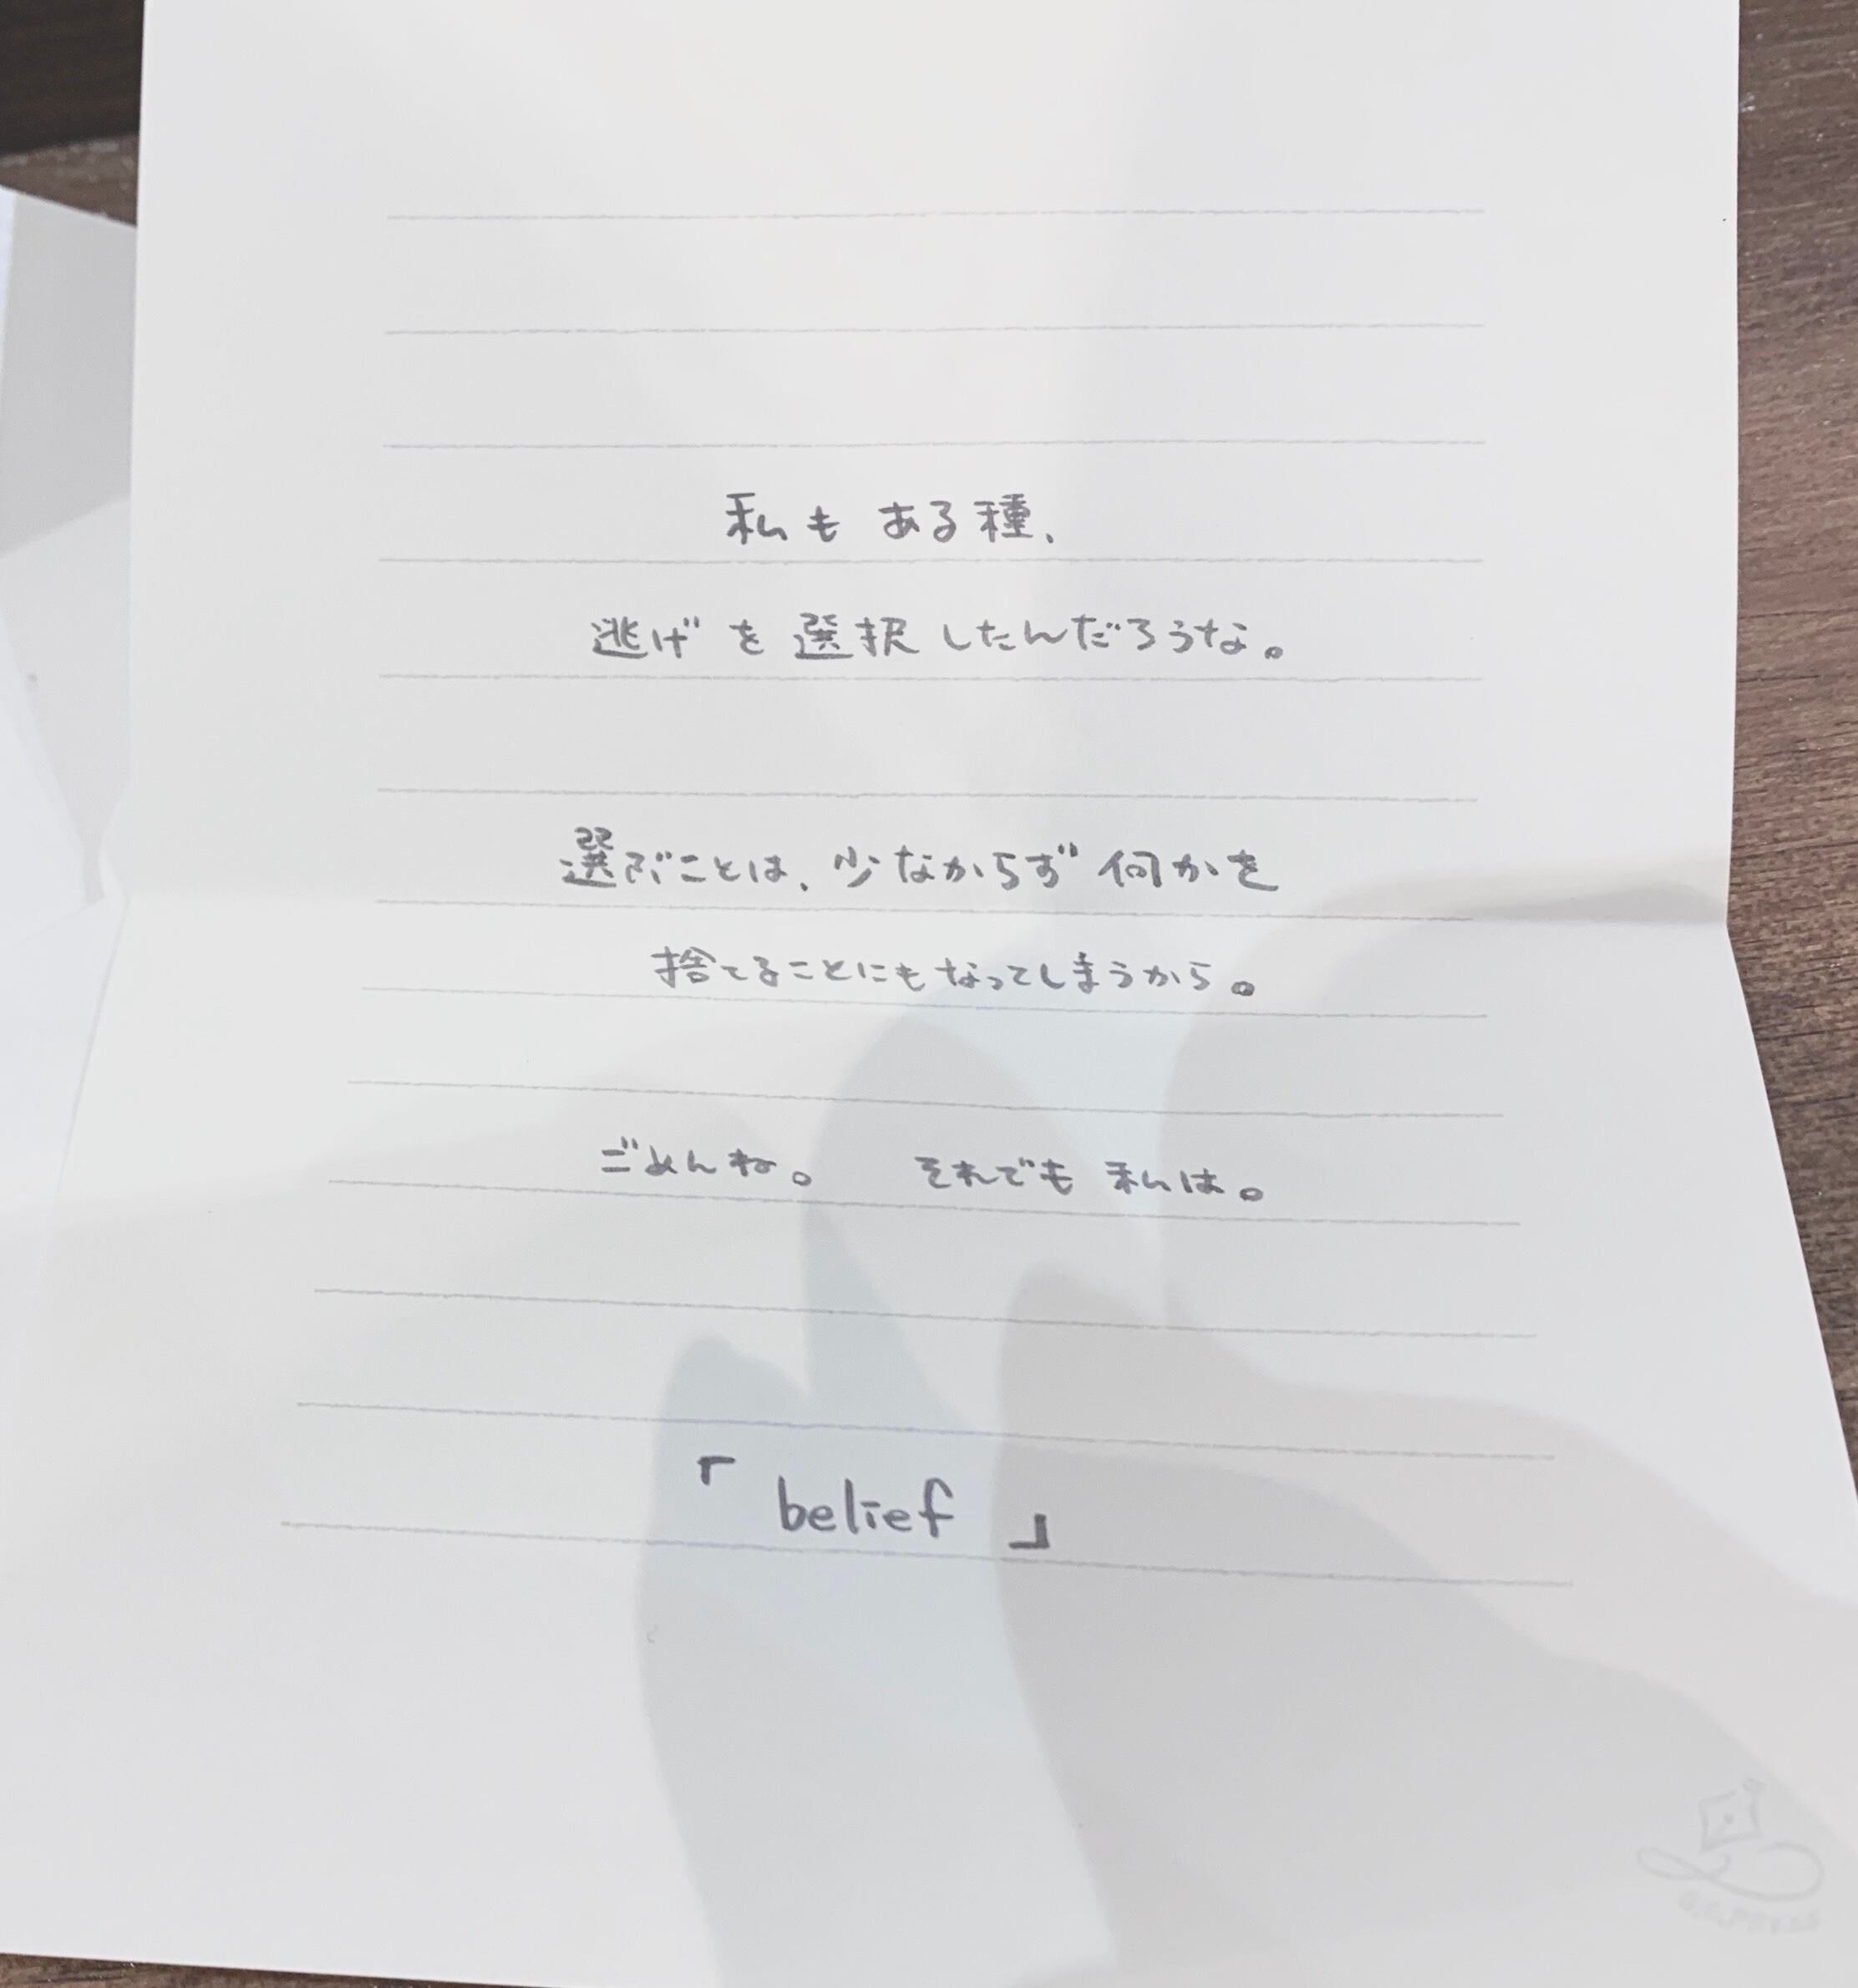 私も ある種、
逃げを選択したんだろうな。
選ぶことは、少なからず何かを
捨てることにもなってしまうから。
ごめんね。 それでも 私は。
「belief」